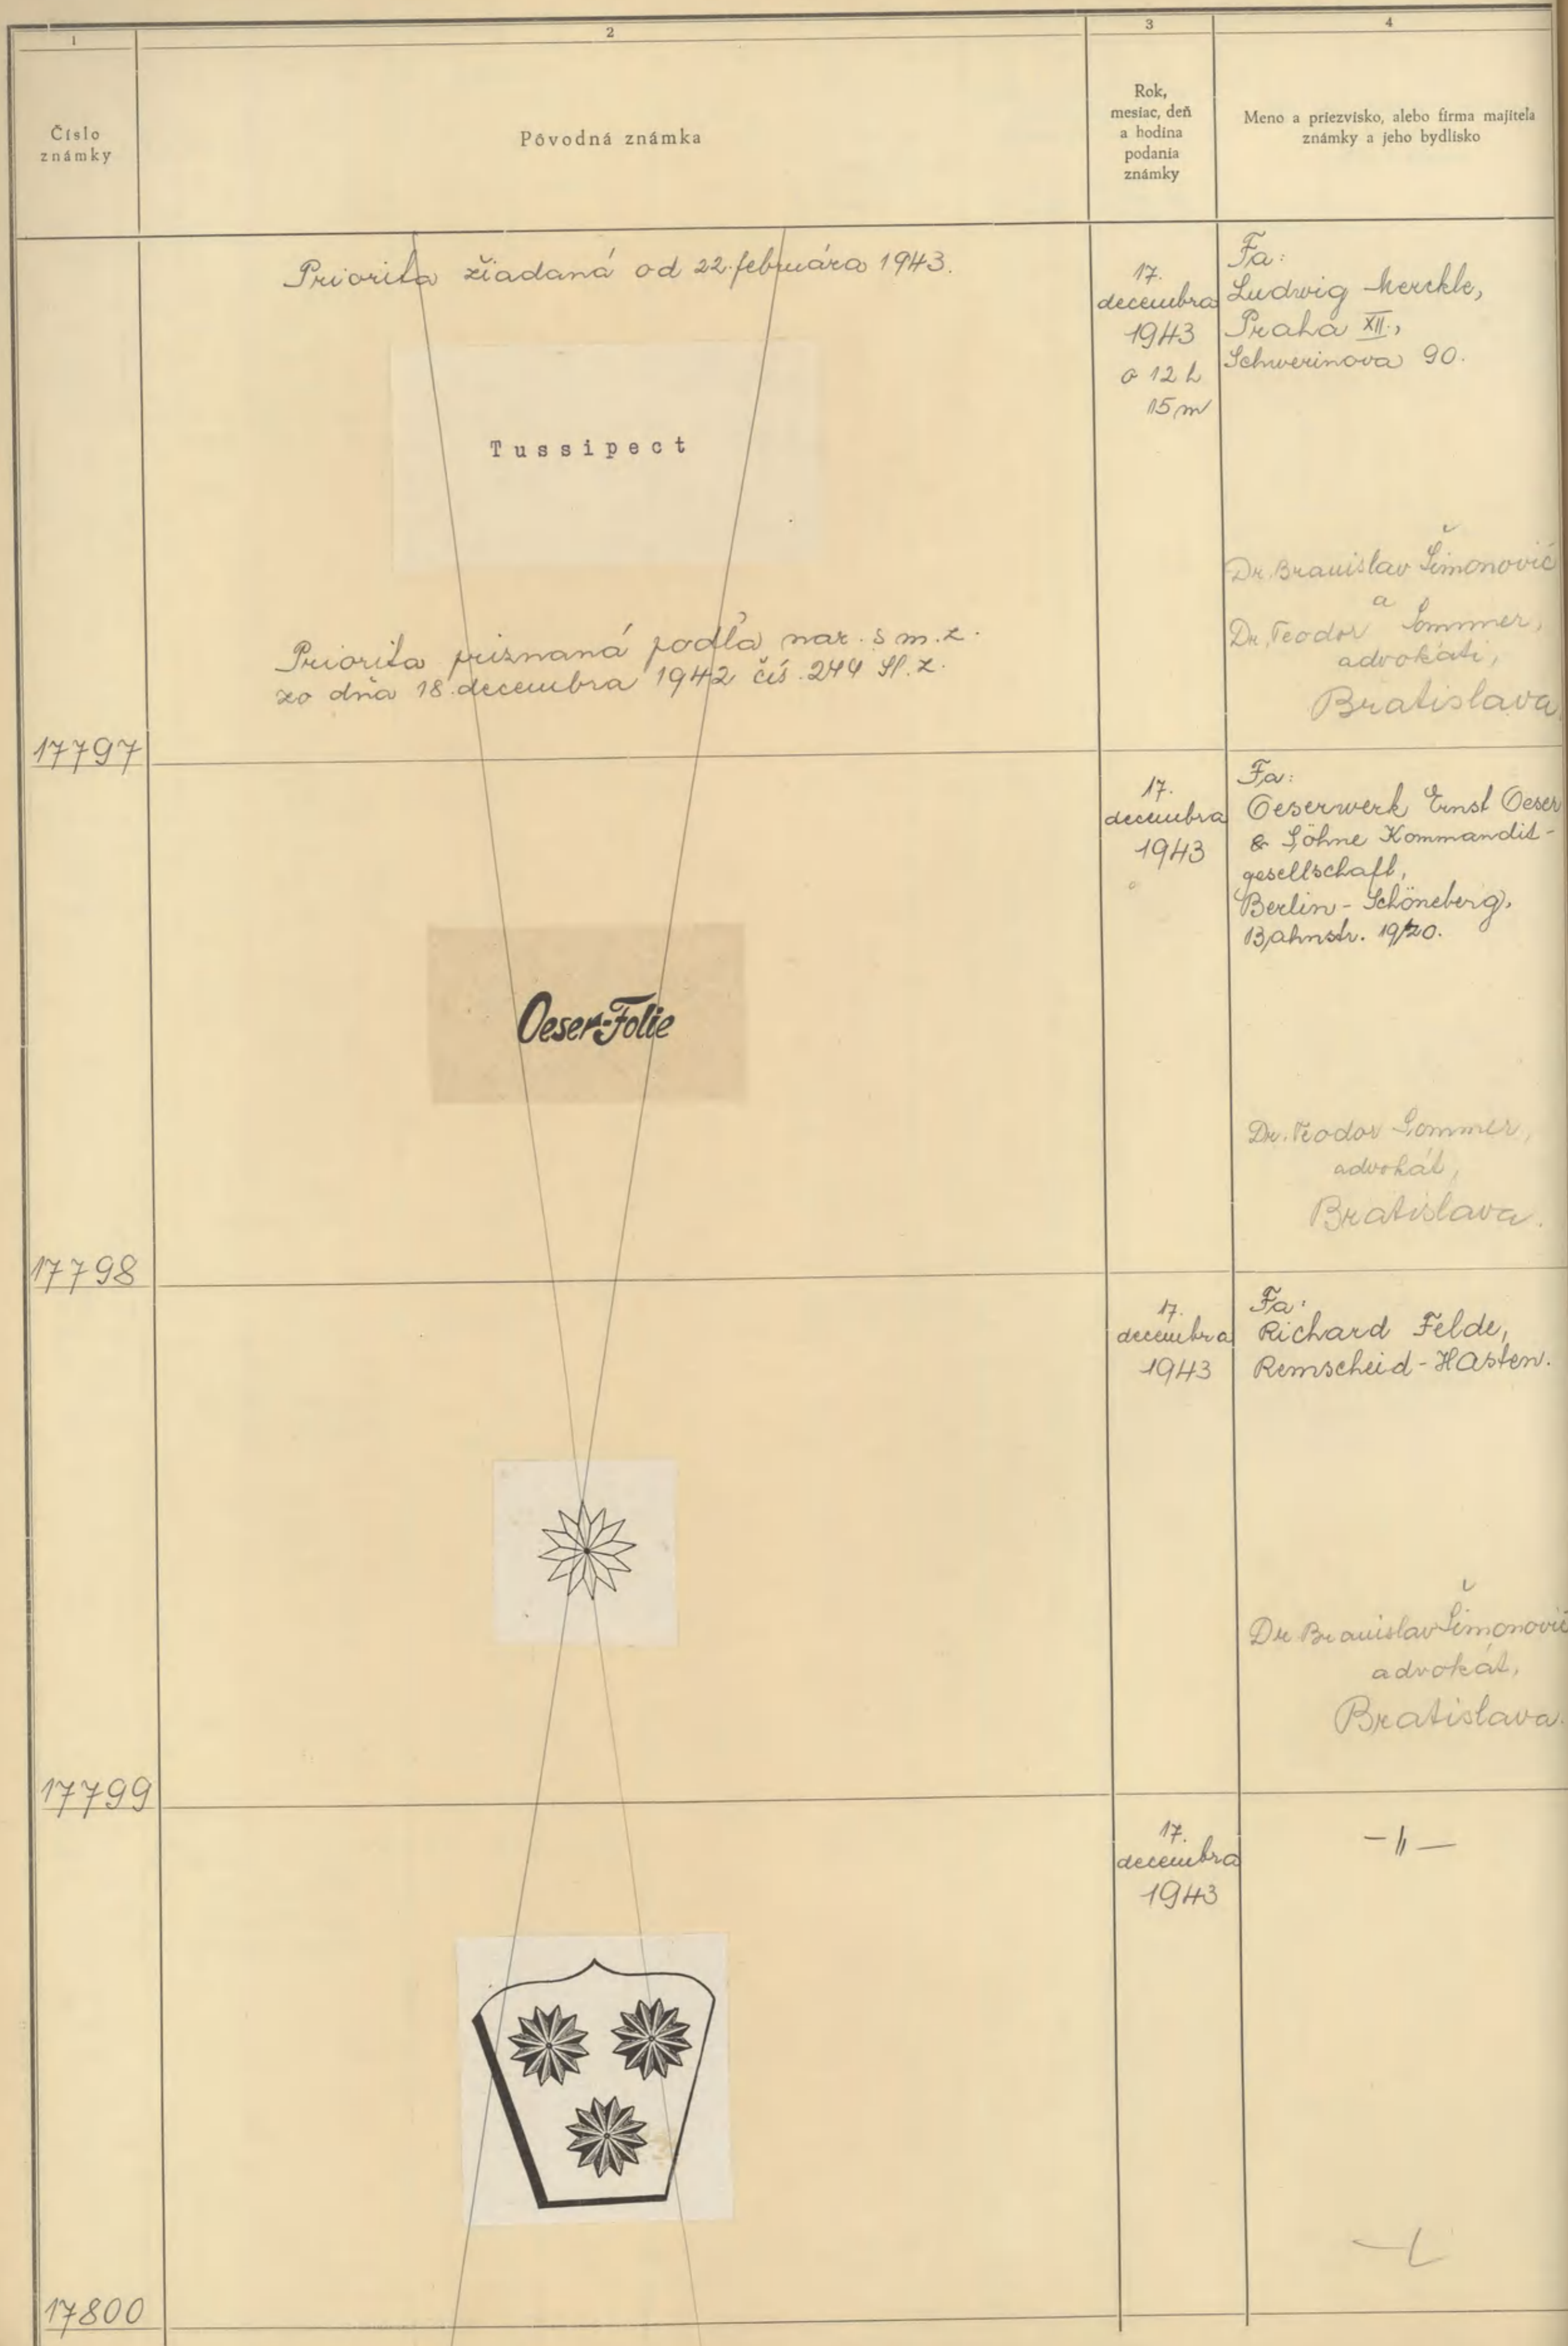 1
2
3
4
Číslo
známky
Pôvodná známka
Rok,
mesiac, deň
a hodina
podania
známky
Meno a priezvisko, alebo firma majiteľa
známky a jeho bydlisko
Priorita žiadaná od 22. februára 1943.
Tussipect
Priorita priznaná podľa nar. s m. z.
zo dňa 18. decembra 1942 čís. 244 Sl. z.
17.
decembra
1943
o 12 h
15 m
Fa:
Ludwig Merckle,
Praha XII.,
Schwerinova 90.
Dr. Branislav Šimonovič
a
Dr. Teodor Sommer,
advokáti,
Bratislava
17797
Oeser-Folie
17.
decembra
1943
Fa:
Oeserwerk Ernst Oeser
& Söhne Kommandit-
gesellschaft,
Berlin-Schöneberg,
Bahnstr. 19/20.
Dr. Teodor Sommer,
advokát,
Bratislava.
17798
17.
decembra
1943
Fa:
Richard Felde,
Remscheid-Hasten.
Dr Branislav Šimonovič
advokát,
Bratislava.
17799
17.
decembra
1943
—〃—
17800